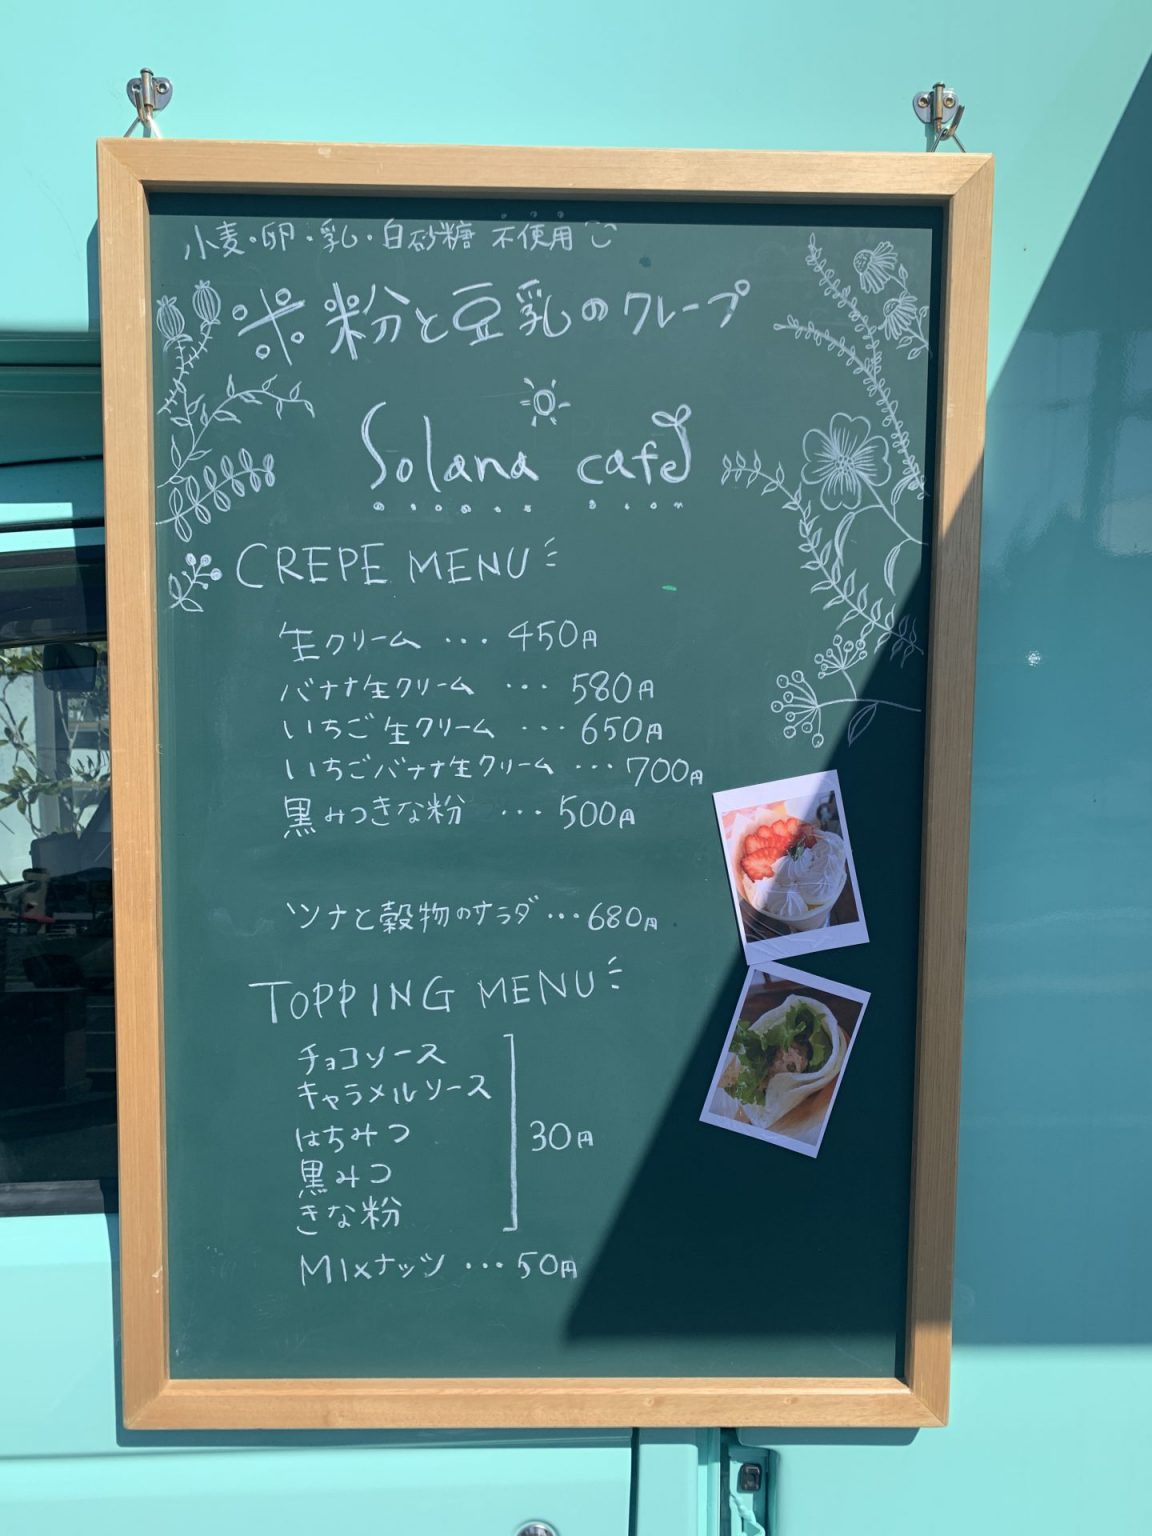 小麦・卵・乳・白砂糖 不使用
米粉と豆乳のクレープ
Solana cafe
CREPE MENU
生クリーム ・・・ 450円
バナナ生クリーム ・・・ 580円
いちご生クリーム ・・・ 650円
いちごバナナ生クリーム ・・・ 700円
黒みつきな粉 ・・・ 500円
ツナと穀物のサラダ ・・・ 680円
TOPPING MENU
チョコソース
キャラメルソース
はちみつ
30円
黒みつ
きな粉
MIXナッツ ・・・ 50円